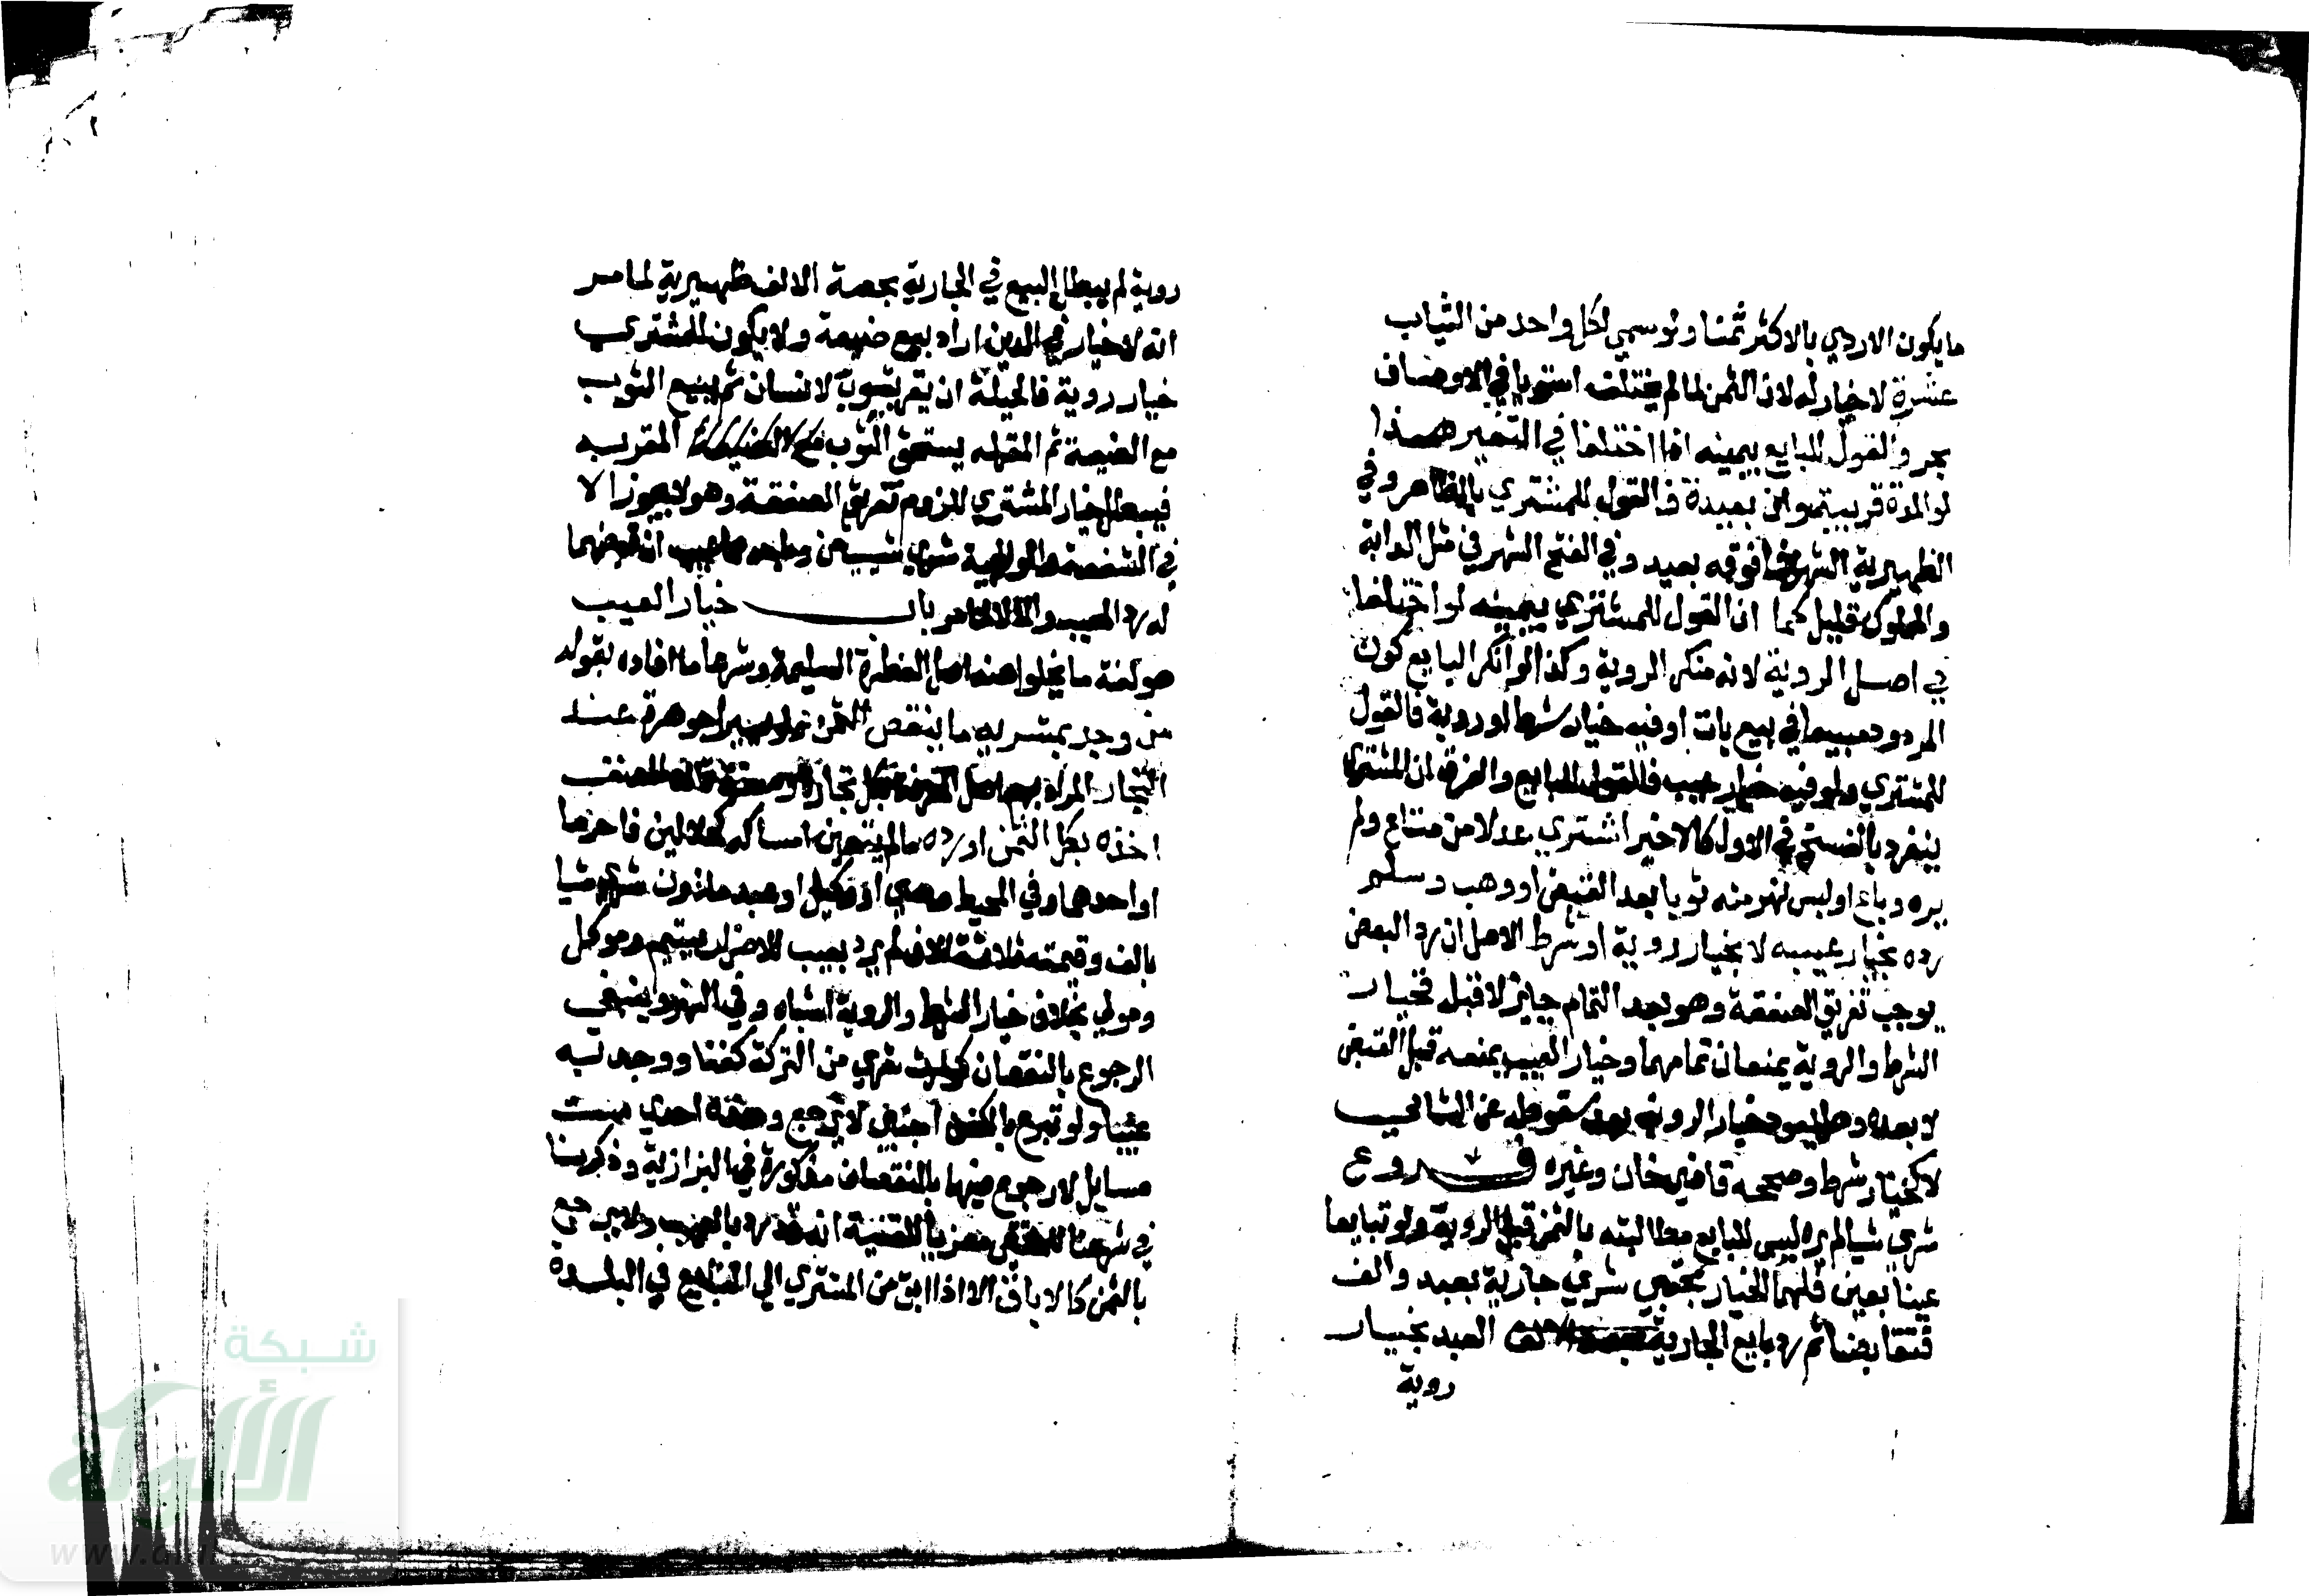 ما يكون الاردي بالاكثر ثمنا ولو سمي لكل واحد من الثياب
عشرة لا خيار له لان الثمن لما لم يختلف استويا في الاوصاف
بحر والقول للبايع بيمينه اذا اختلفا في التغير هذا
لو المدة قريبة وان بعيدة فالقول للمشتري بالظاهر وفي
الظهيرية الشهر فما فوقه بعيد وفي الفتح الشهر في مثل الدابة
والمملوك قليل كما ان القول للمشتري بيمينه لو اختلفا
في اصل الروية لانه منكر الروية وكذا لو انكر البايع كون
المردود مبيعا في بيع بات او فيه خيار شرط او روية فالقول
للمشتري ولو فيه خيار عيب فالقول للبايع والفرق ان المشتري
ينفرد بالفسخ في الاول كالاخير اشتري عدلا من متاع ولم
يره وباع او لبس نهر منه ثوبا بعد القبض او وهب وسلم
رده بخيار عيب لا بخيار روية او شرط الاصل ان رد البعض
يوجب تفريق الصفقة وهو بعد التمام جايز لا قبله فخيار
الشرط والروية يمنعان تمامها وخيار العيب يمنعه قبل القبض
لا بعده وهل يعود خيار الروية بعد سقوطه عن الثاني
لا كخيار شرط وصححه قاضي خان وغيره فروع
شري شيا لم يره ليس للبايع مطالبته بالثمن قبل الروية ولو تبايعا
عينا بعين فلهما الخيار مجتبي شري جارية بعبد والف
فتقابضا ثم رد بايع الجارية العبد بخيار
روية
روية لم يبطل البيع في الجارية بحصة الالف ظهيرية لما مر
انه لا خيار في الدين اراد بيع ضيعة ولا يكون للمشتري
خيار روية فالحيلة ان يقر بثوب لانسان ثم يبيع الثوب
مع الضيعة ثم المقر له يستحق الثوب المقر به
فيبطل خيار المشتري للزوم تفريق الصفقة وهو لا يجوز الا
في الشفعة ولوالجية شري شيين وباحدهما عيب ان قبضهما
له رد المعيب والا لا لما مر باب خيار العيب
هو لغة ما يخلو عنه اصل الفطرة السليمة وشرعا ما افاده بقوله
من وجد بمشريه ما ينقص الثمن ولو يسيرا جوهرة عند
التجار المراد بهم ارباب المعرفة بكل تجارة وصنعة قاله المصنف
اخذه بكل الثمن او رده ما لم يتعين امساكه كحلالين فاحرما
او احدهما وفي المحيط وصي او وكيل او عبد ماذون شري شيا
بالف وقيمته ثلاثة الاف لم يرد بعيب للاضرار بيتيم وموكل
ومولي بخلاف خيار الشرط والروية اشباه وفي النهر وينبغي
الرجوع بالنقصان كوارث شري من التركة كفنا ووجد به
عيبا ولو تبرع بالكفن اجنبي لا يرجع وهذه احدي ست
مسايل لا رجوع فيها بالنقصان مذكورة في البزازية وذكرنا
في شرحنا للملتقي معزيا للقنية انه قد يرد بالعيب ولا يرجع
بالثمن كالاباق الا اذا ابق من المشتري الي البايع في البلدة
شبكة
الألوكة